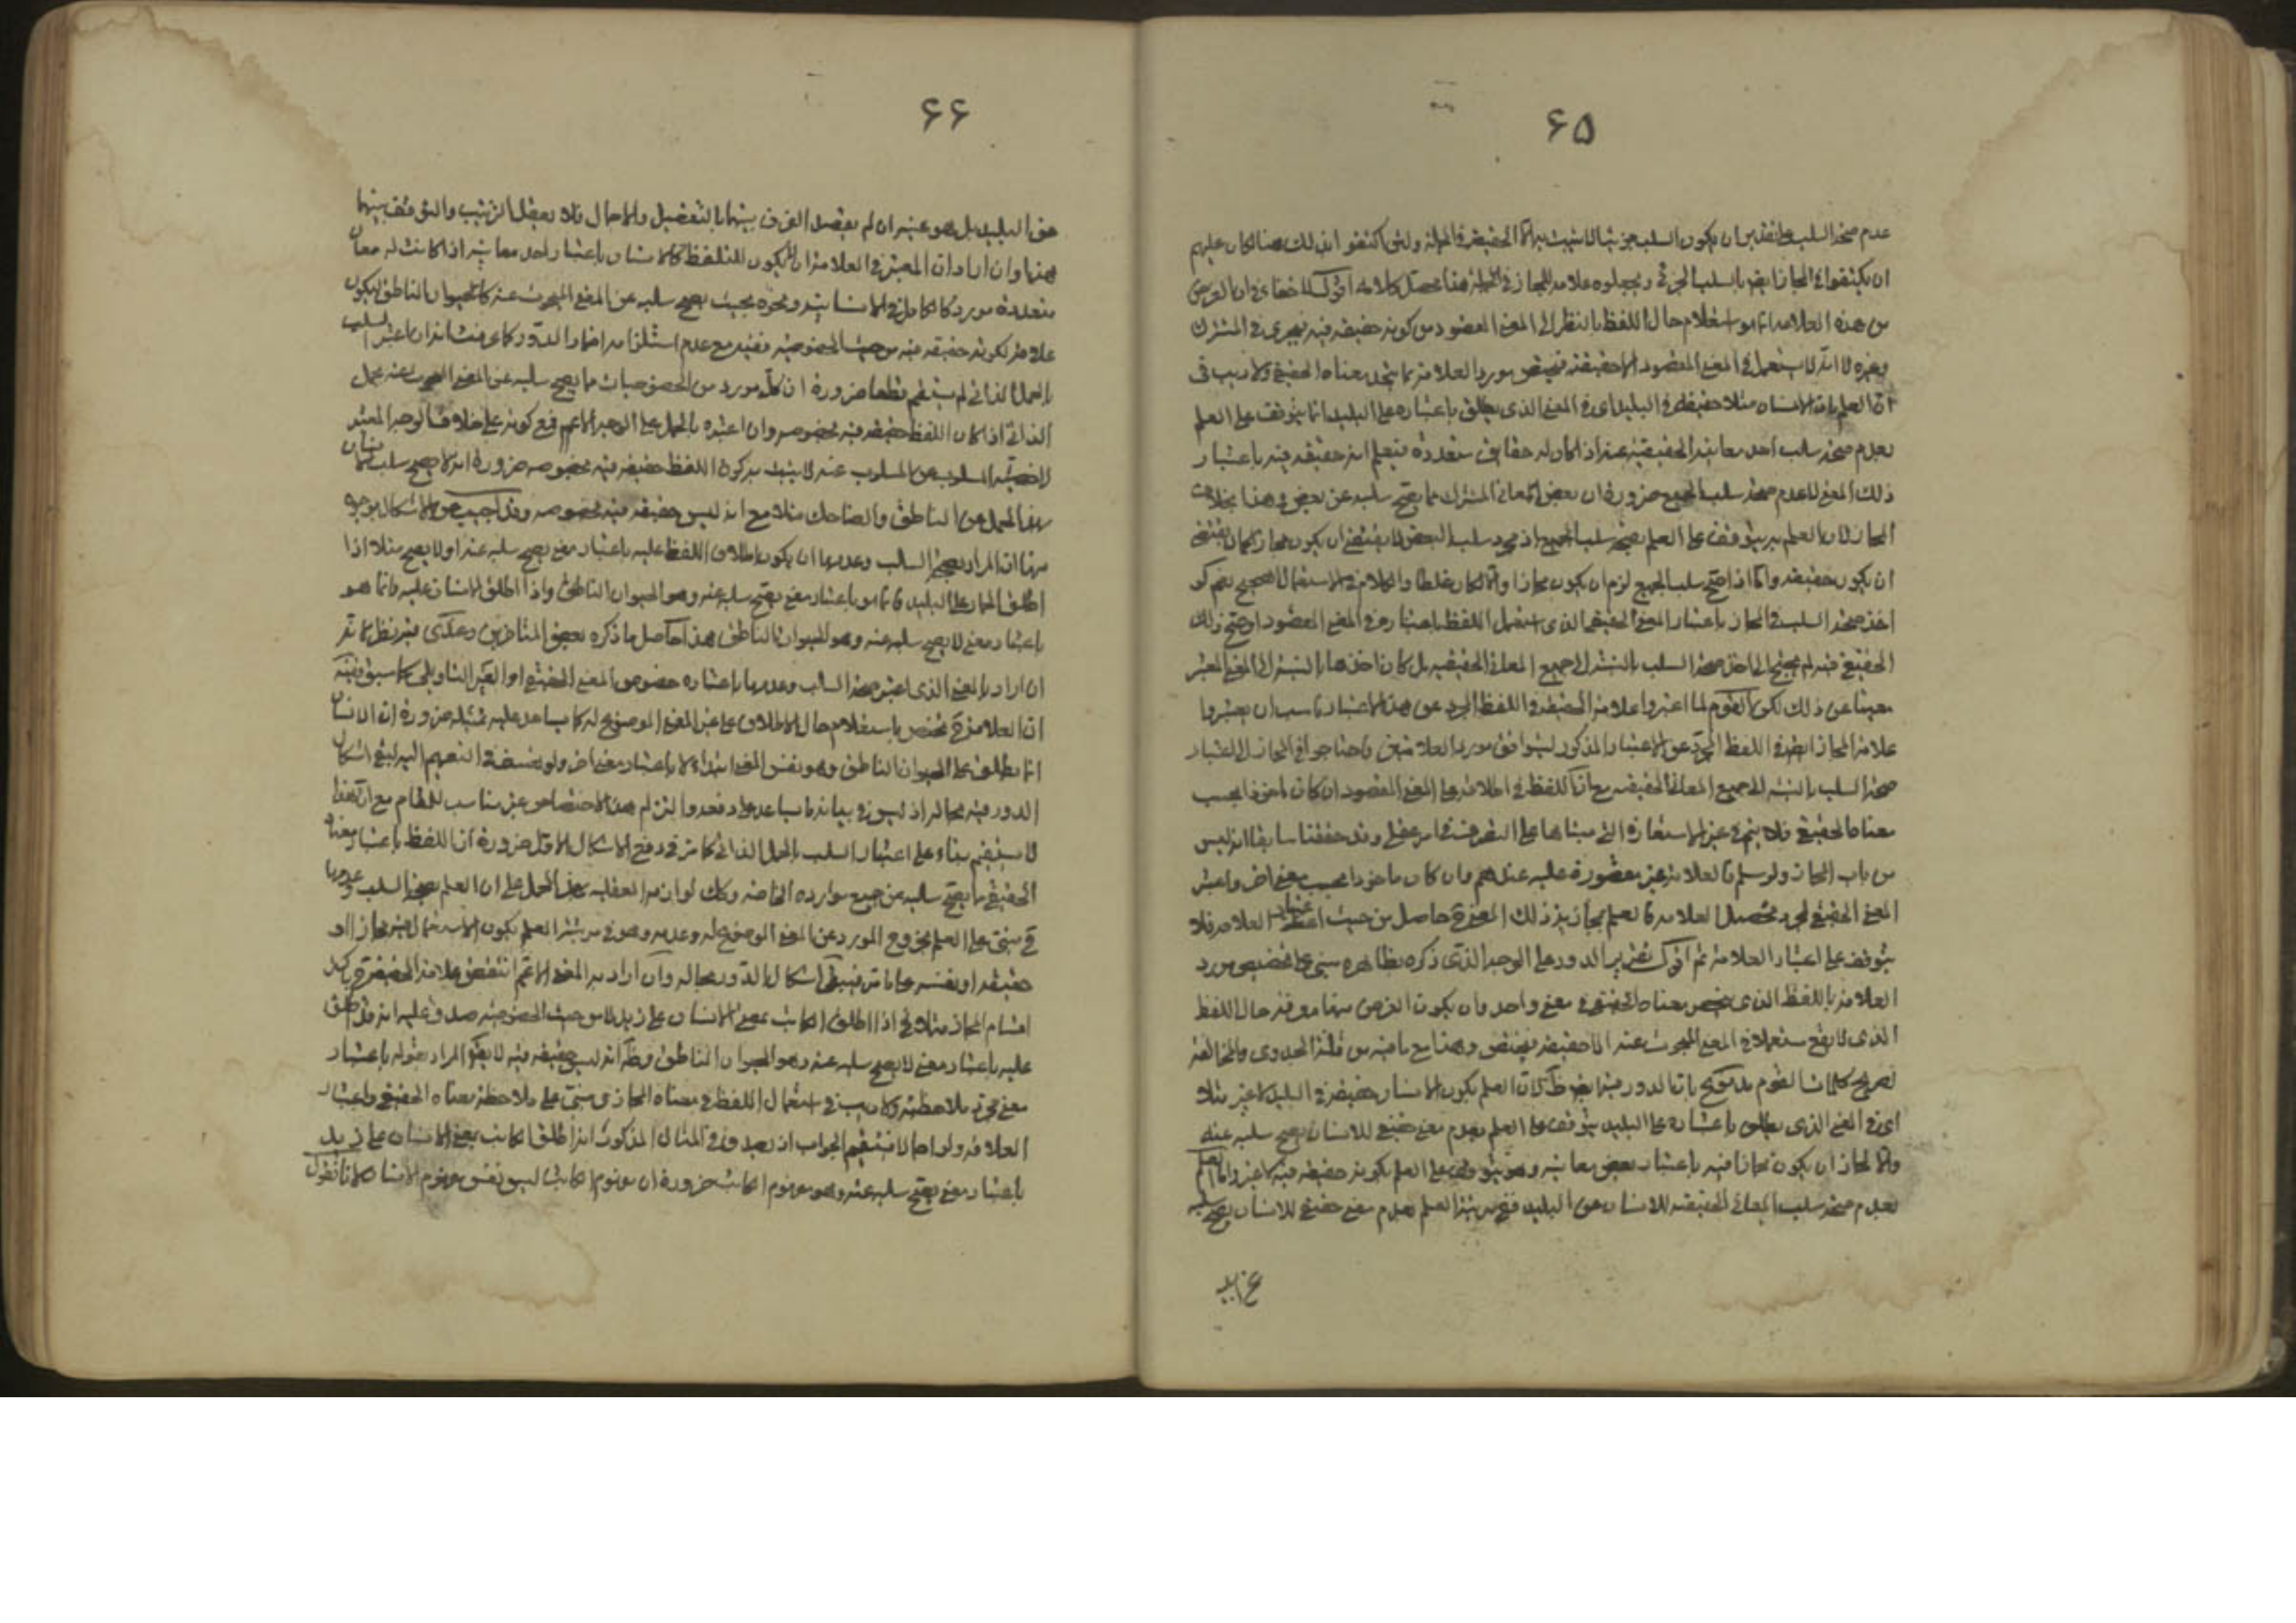 ۶۵
عدم صحة السلب على تقدير ان يكون السلب جزئيا لا يثبت به الا الحقيقة في الجملة ولئن اكتفوا بذلك هنا لكان عليهم
ان يكتفوا في المجاز ايضا بالسلب الجزئي ويجعلوه علامة للمجاز في الجملة هذا محصل كلامه اقول لا خفاء في ان الغرض
من هذه العلامة انما هو استعلام حال اللفظ بالنظر الى المعنى المقصود من كونه حقيقة فيه فيجري في المشترك
وغيره لا انه لا يستعمل في المعنى المقصود الا حقيقة فيختص مورد العلامة بما يتحد معناه الحقيقي ولا ريب في
ان العلم بان الانسان مثلا حقيقة في البليد اي في المعنى الذي يطلق باعتباره على البليد انما يتوقف على العلم
بعدم صحة سلب احد معانيه الحقيقية عنه اذا كان له حقايق متعددة فيعلم انه حقيقة فيه باعتبار
ذلك المعنى لا عدم صحة سلب الجميع ضرورة ان بعض المعاني المشترك مما يصح سلبه عن بعض وهذا بخلاف
المجاز لان العلم به يتوقف على العلم بصحة سلب الجميع اذ مجرد سلب البعض لا يقتضي ان يكون مجازا لجواز
ان يكون حقيقة واما اذا صح سلب الجميع لزم ان يكون مجازا والا لكان غلطا والكلام في الاستعمال الصحيح نعم لو
اخذ صحة السلب في المجاز باعتبار المعنى الحقيقي الذي استعمل اللفظ باعتباره في المعنى المقصود او صح ذلك
الحقيقي فيه لم يحتج الى اخذ صحة السلب بالنسبة الى جميع المعاني الحقيقية بل كان اخذها بالنسبة الى المعنى المعتبر
مغنيا عن ذلك لكن القوم لما اعتبروا علامة الحقيقة في اللفظ المجرد عن هذا الاعتبار ناسب ان يعتبروا
علامة المجاز ايضا في اللفظ المجرد عن الاعتبار المذكور ليتوافق مورد العلامتين فاحتاجوا في المجاز الى اعتبار
صحة السلب بالنسبة الى جميع المعاني الحقيقية مع ان اللفظ في اطلاقه على المعنى المقصود ان كان ماخوذا بحسب
معناه الحقيقي فلا يتم في غير الاستعارة التي مبناها على التصرف في امر عقلي وقد حققنا سابقا انه ليس
من باب المجاز ولو سلم فالعلامة غير مقصورة عليه عندهم وان كان ماخوذا بحسب معنى اخر واعتبر
المعنى الحقيقي لمجرد تحصيل العلامة فالعلم بمجازية ذلك المعنى حاصل من حيث اعتبار العلامة فلا
يتوقف على اعتبار العلامة ثم اقول تقرير الدور على الوجه الذي ذكره بظاهره مبني على تخصيص مورد
العلامة باللفظ الذي ينحصر معناه الحقيقي في معنى واحد وان يكون الغرض منها معرفة حال اللفظ
الذي لا يقع مستعملا في المعنى المبحوث عنه الا حقيقة فيختص وهذا مع ما فيه من قلة الجدوى والمخالفة
لصريح كلمات القوم يدفع بان الدور فيه ايضا ظاهر لان العلم بكون الانسان حقيقة في البليد كاعتبر مثلا
اي في المعنى الذي يطلق باعتباره على البليد يتوقف على العلم بعدم معنى حقيقي للانسان يصح سلبه عنه
والا لجاز ان يكون مجازا فيه باعتبار بعض معانيه وهو يتوقف على العلم بكونه حقيقة فيه كاعتبر واما العلم
بعدم صحة سلب المعاني الحقيقية للانسان عن البليد فهو بمنزلة العلم بعدم معنى حقيقي للانسان يصح سلبه
عن البليد
۶۶
عن البليد بل هو عينه ان لم يقصد الفرق بينهما بالتفصيل والاجمال فلا يعقل الترتيب والتوقف بينهما
هذا وان اراد ان المعتبر في العلامة ان يكون للفظ كالانسان باعتبار احد معانيه اذا كانت له معان
متعددة مورد كالكامل في الانسانية ونحوه بحيث يصح سلبه عن المعنى المبحوث عنه كالحيوان الناطق ليكون
علامة لكونه حقيقة فيه من حيث الخصوصية ففيه مع عدم استلزامه اضمار الدور كما عرفت انه ان اعتبر السلب
بالحمل الذاتي لم يستقم قطعا ضرورة ان كل مورد من الخصوصيات مما يصح سلبه عن المعنى المبحوث عنه بحمل
الذاتي اذا كان اللفظ حقيقة فيه بخصوصه وان اعتبره بالحمل على الوجه الاعم فمع كونه على خلاف الوجه المعتبر
لاخصية المسلوب من المسلوب عنه لا يثبت به كون اللفظ حقيقة فيه بخصوصه ضرورة انه لا يصح سلب الانسان
بهذا الحمل عن الناطق والضاحك مثلا مع انه ليس حقيقة فيه بخصوصه وقد اجيب عن الاشكال بوجوه
منها ان المراد بصحة السلب وعدمها ان يكون اطلاق اللفظ عليه باعتبار معنى يصح سلبه عنه او لا يصح مثلا اذا
اطلق الحمار على البليد فانما هو باعتبار معنى يصح سلبه عنه وهو الحيوان الناهق واذا اطلق الانسان عليه فانما هو
باعتبار معنى لا يصح سلبه عنه وهو الحيوان الناطق هذا حاصل ما ذكره بعض المتاخرين وعندي فيه نظر لانه
ان اراد بالمعنى الذي اعتبر صحة السلب وعدمها باعتباره خصوص المعنى الحقيقي او الغير التاويلي كما سبق ففيه
ان العلامة ح تختص باستعلام حال الاطلاق على غير المعنى الموضوع له كما يساعد عليه تمثيله ضرورة ان الانسان
انما يطلق على الحيوان الناطق وهو نفس المعنى ابتداء لا باعتبار معنى اخر ولو تعسف في التعميم اليه لبقي اشكال
الدور فيه بحاله اذ ليس في بيانه ما يساعد على دفعه والتزام هذا الاختصاص غير مناسب للمقام مع ان هذا
لا يستقيم بناء على اعتبار السلب بالحمل الذاتي كما مر في دفع الاشكال الاول ضرورة ان اللفظ باعتبار معناه
الحقيقي ما يصح سلبه عن جميع موارده الخاصة وكك لوازمه العقلية بهذا الحمل على ان العلم بصحة السلب وعدمها
ح مبني على العلم بخروج المورد عن المعنى الموضوع له وعدمه وهو في مرتبة العلم بكون الاستعمال فيه مجازا او
حقيقة او نفسه على ما مر فيبقى اشكال الدور بحاله وان اراد به المعنى الاعم انتقض علامة الحقيقة ح بكل
اقسام المجاز مثلا ح اذا اطلق الكاتب بمعنى الانسان على زيد لا من حيث الخصوصية صدق عليه انه قد اطلق
عليه باعتبار معنى لا يصح سلبه عنه وهو الحيوان الناطق وظ انه ليس حقيقة فيه لا يقال المراد بقوله باعتبار
معنى مجرد ملاحظته ولا ريب في استعمال اللفظ في معناه المجازي مبني على ملاحظة معناه الحقيقي واعتبار
العلاقة ولو اجمالا فيستقيم الجواب اذ يصدق في المثال المذكور انه اطلق الكاتب بمعنى الانسان على زيد
باعتبار معنى يصح سلبه عنه وهو مفهوم الكاتب ضرورة ان مفهوم الكاتب ليس نفس مفهوم الانسان لانا نقول